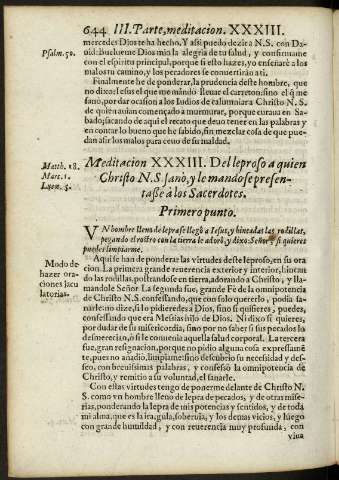 644 III. Parte, meditacion. XXXIII.
mercedes Dios te ha hecho. Y assi puedo dezir a N.S. con Da-
Psalm. 50.
uid: Buelueme Dios mio la alegria de tu salud, y confirmame
con el espiritu principal, porque si esto hazes, yo enseñarè a los
malos tu camino, y los pecadores se conuertiràn a ti.
Finalmente he de ponderar, la prudencia deste hombre, que
no dixo el es el que me mandò lleuar el carreton: sino el q̃ me
sanò, por dar ocasion a los Iudios de calumniar a Christo N. S.
de quien auian començado a murmurar, porque curaua en Sa-
bado; sacando de aqui el recato que deuo tener en las palabras y
en contar lo bueno que he sabido, sin mezclar cosa de que pue-
dan asir los malos para ceuo de su maldad.
Matth. 18.
Marc. 1.
Luc. 5.
Meditacion XXXIII. Del leproso a quien
Christo N. S. sanò, y le mandò se presen-
tasse à los Sacerdotes.
Primero punto.
VN hombre lleno de lepra se llegò a Iesus, y hincadas las rodillas,
pegando el rostro con la tierra le adorò, y dixo: Señor, si quieres
puedes limpiarme.
Modo de
hazer ora
ciones jacu
latorias.
Aqui se han de ponderar las virtudes deste leproso, en su ora
cion. La primera grande reuerencia exterior y interior, hincan
do las rodillas, postrandose en tierra, adorando a Christo, y lla-
mandole Señor. La segunda fue, grande Fè de la omnipotencia
de Christo N. S. confessando, que con solo quererlo, podia sa-
narle: no dize, si lo pidieredes a Dios, sino si quisieres, puedes,
confessando que era Messias hijo de Dios. Ni dixo si quieres,
por dudar de su misericordia, sino por no saber si sus pecados lo
desmerecian, ò si le conuenia aquella salud corporal. La tercera
fue, gran resignacion, porque no pidio alguna cosa expressamẽ
te, pues no añadio, limpiame: sino descubrio su necessidad y des-
seo, con breuissimas palabras, y confessò la omnipotencia de
Christo, y remitio a su voluntad, el sanarle.
Con estas virtudes tengo de ponerme delante de Christo N.
S. como vn hombre lleno de lepra de pecados, y de otras mise-
rias, ponderando la lepra de mis potencias y sentidos, y de toda
mi alma, que es la ira, gula, soberuia, y los demas vicios, y luego
con grande humildad, y con reuerencia muy profunda, con
viua